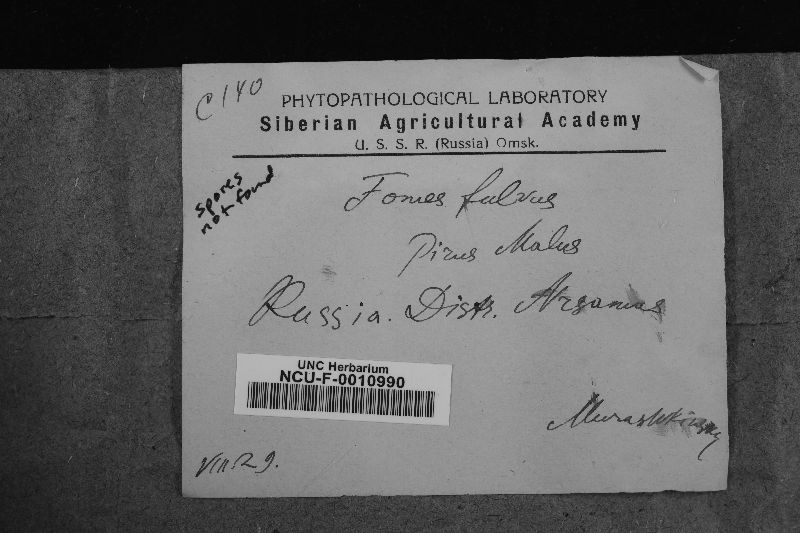 C 140
PHYTOPATHOLOGICAL LABORATORY
Siberian Agricultural Academy
U. S. S. R. (Russia) Omsk.
spores
not found
Fomes fulvus
Pirus Malus
Russia. Distr. Arsamas
UNC Herbarium
NCU-F-0010990
Murashkinsky
VIII.29.